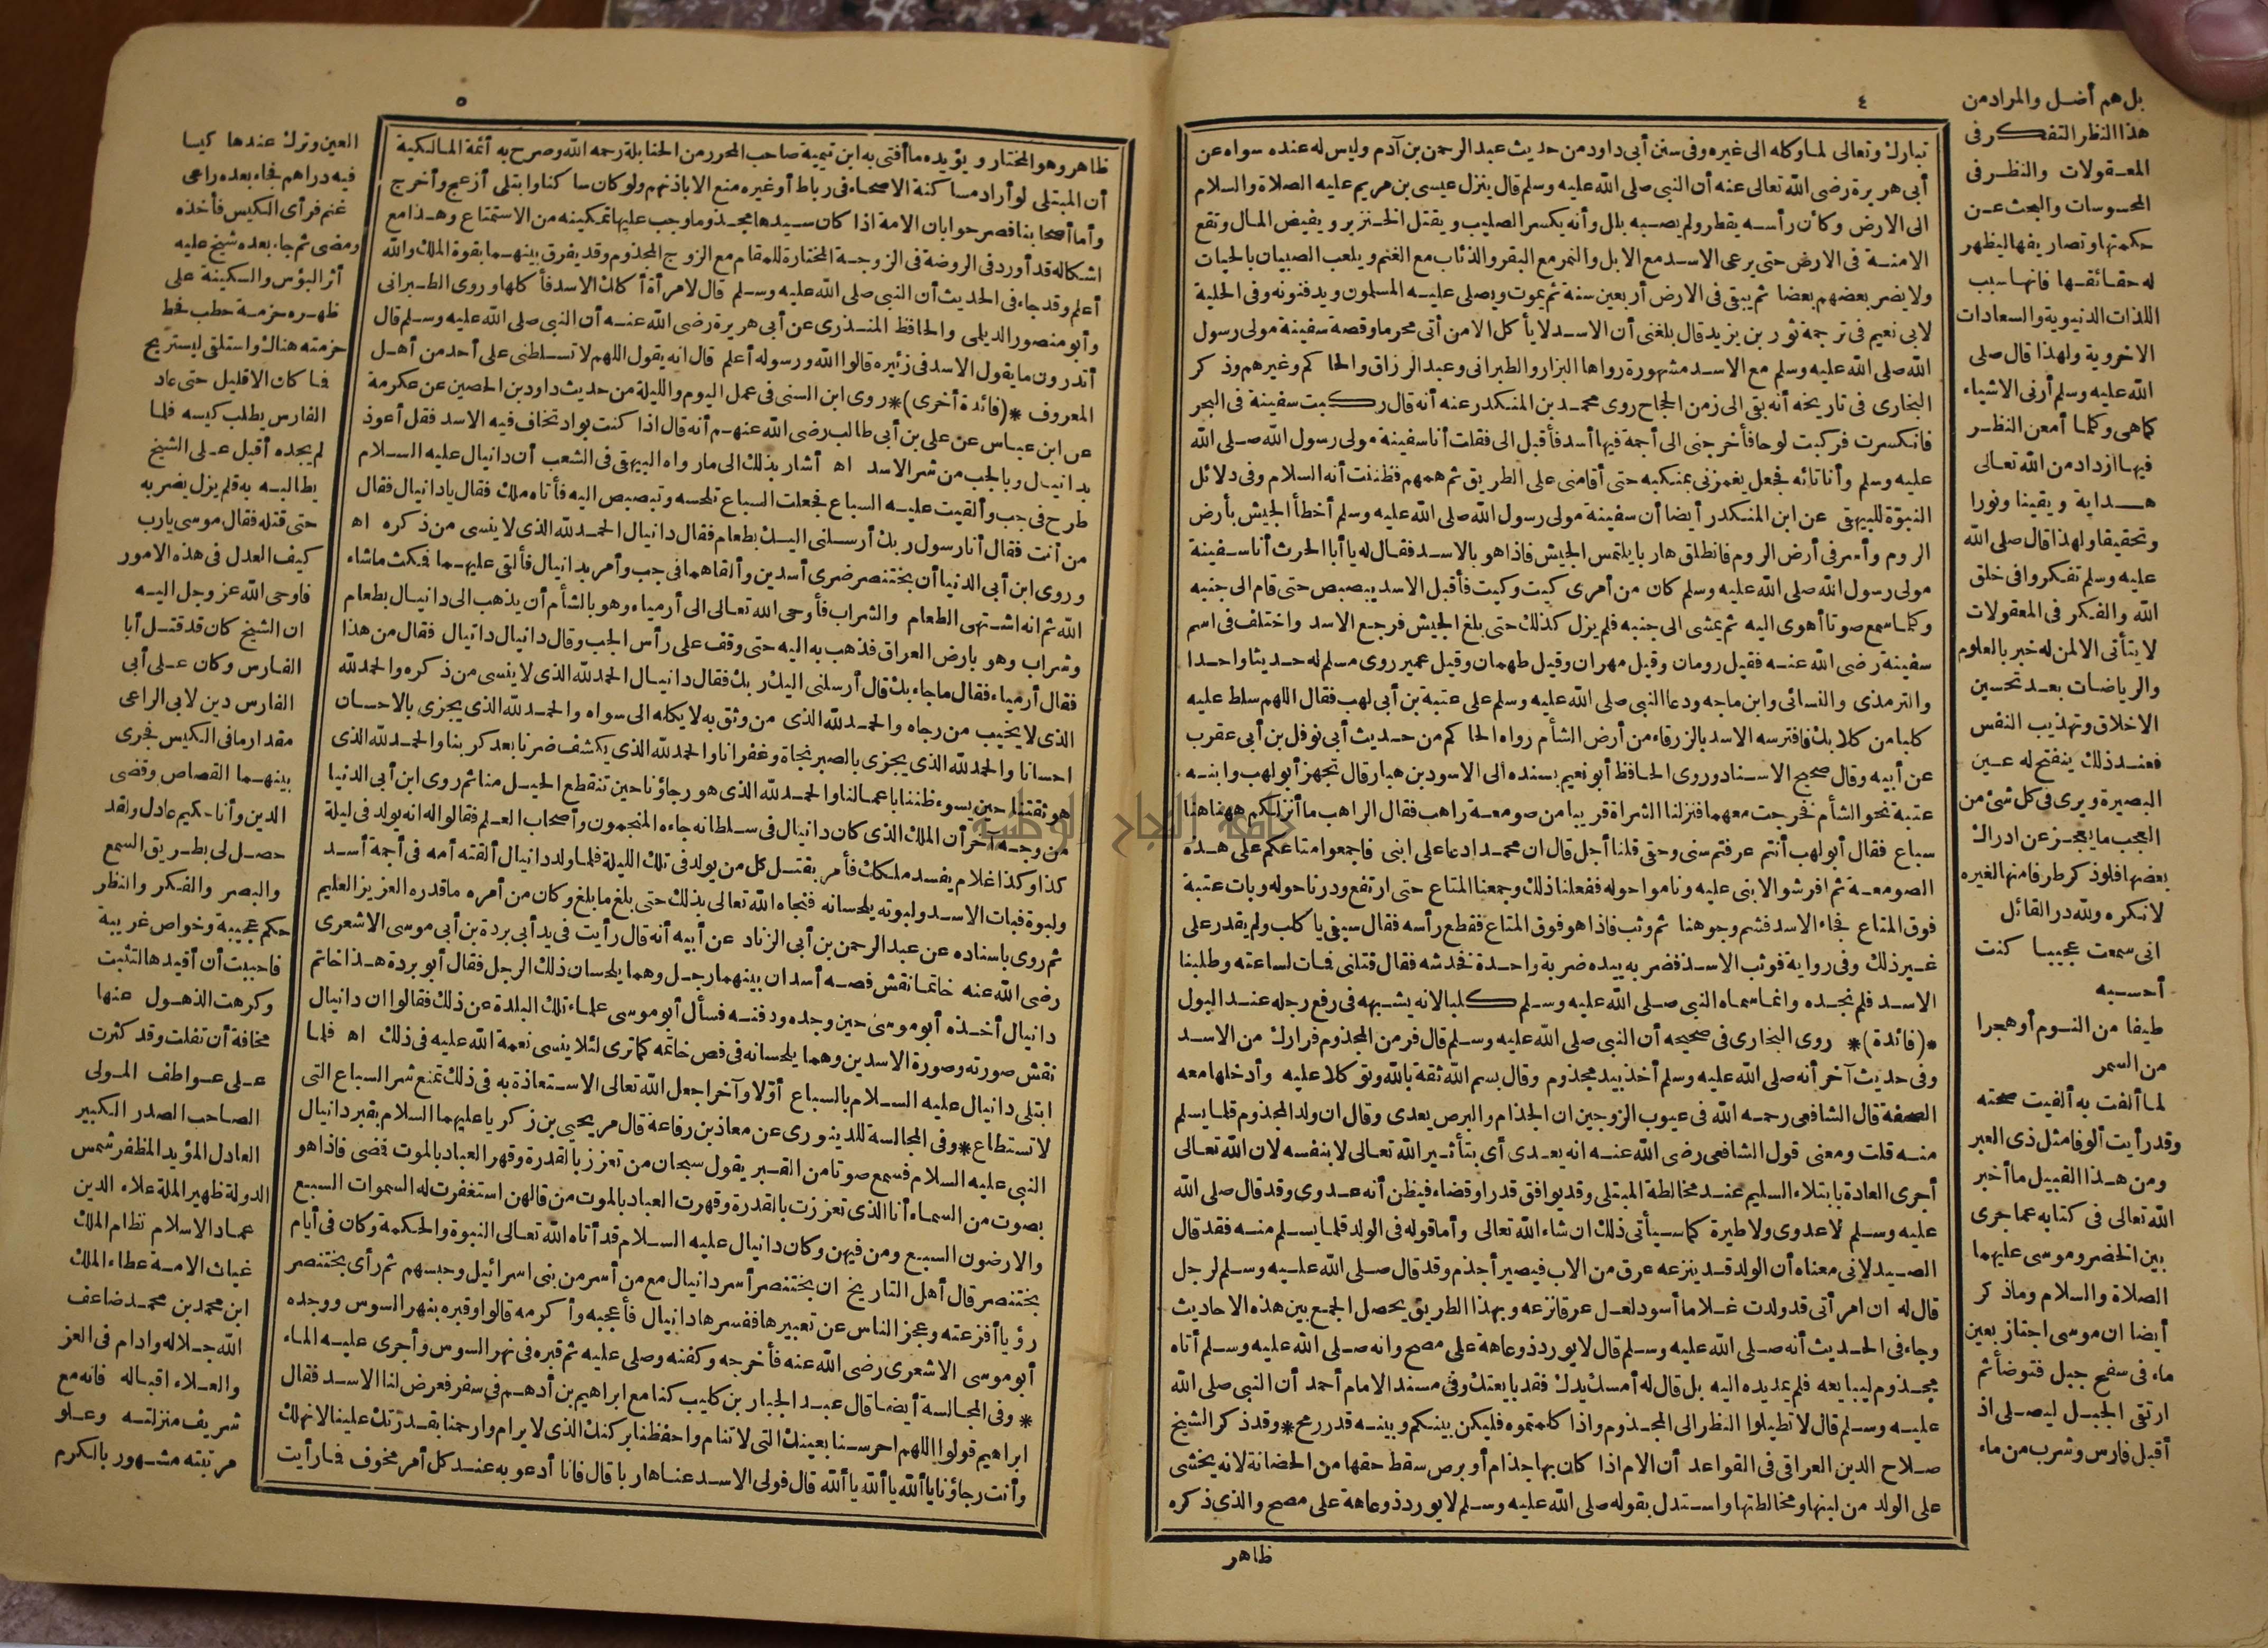 ٤
تبارك وتعالى لما وكله الى غيره وفى سنن أبى داود من حديث عبد الرحمن بن آدم وليس له عنده سواه عن
أبى هريرة رضى الله تعالى عنه أن النبى صلى الله عليه وسلم قال ينزل عيسى بن مريم عليه الصلاة والسلام
الى الارض وكأن رأسه يقطر ولم يصبه بلل وأنه يكسر الصليب ويقتل الخنزير ويفيض المال وتقع
الامنة فى الارض حتى يرعى الاسد مع الابل والنمر مع البقر والذئاب مع الغنم ويلعب الصبيان بالحيات
ولا يضر بعضهم بعضا ثم يبقى فى الارض أربعين سنة ثم يموت ويصلى عليه المسلمون ويدفنونه وفى الحلية
لابى نعيم فى ترجمة ثور بن يزيد قال بلغنى أن الاسد لا يأكل الا من أتى محرما وقصة سفينة مولى رسول
الله صلى الله عليه وسلم مع الاسد مشهورة رواها البزار والطبرانى وعبد الرزاق والحاكم وغيرهم وذكر
البخارى فى تاريخه أنه بقى الى زمن الحجاج روى محمد بن المنكدر عنه أنه قال ركبت سفينة فى البحر
فانكسرت فركبت لوحا فأخرجنى الى أجمة فيها أسد فأقبل الى فقلت أنا سفينة مولى رسول الله صلى الله
عليه وسلم وأنا تائه فجعل يغمزنى بمنكبه حتى أقامنى على الطريق ثم همهم فظننت أنه السلام وفى دلائل
النبوّة للبيهقى عن ابن المنكدر أيضا أن سفينة مولى رسول الله صلى الله عليه وسلم أخطأ الجيش بأرض
الروم وأسر فى أرض الروم فانطلق هاربا يلتمس الجيش فاذا هو بالاسد فقال له يا أبا الحرث أنا سفينة
مولى رسول الله صلى الله عليه وسلم كان من أمرى كيت وكيت فأقبل الاسد يبصبص حتى قام الى جنبه
وكلما سمع صوتا أهوى اليه ثم يمشى الى جنبه فلم يزل كذلك حتى بلغ الجيش فرجع الاسد واختلف فى اسم
سفينة رضى الله عنه فقيل رومان وقيل مهران وقيل طهمان وقيل عمير روى مسلم له حديثا واحدا
والترمذى والنسائى وابن ماجه ودعا النبى صلى الله عليه وسلم على عتبة بن أبى لهب فقال اللهم سلط عليه
كلبا من كلابك فافترسه الاسد بالزرقاء من أرض الشأم رواه الحاكم من حديث أبى نوفل بن أبى عقرب
عن أبيه وقال صحيح الاسناد وروى الحافظ أبو نعيم بسنده الى الاسود بن هبار قال تجهز أبو لهب وابنه
عتبة نحو الشأم فخرجت معهما فنزلنا الشراة قريبا من صومعة راهب فقال الراهب ما أنزلكم ههنا هنا
سباع فقال أبو لهب أنتم عرفتم سنى وحقى قلنا أجل قال ان محمدا دعا على ابنى فاجمعوا متاعكم على هذه
الصومعة ثم افرشوا لابنى عليه وناموا حوله ففعلنا ذلك وجمعنا المتاع حتى ارتفع ودرنا حوله وبات عتبة
فوق المتاع فجاء الاسد فشم وجوهنا ثم وثب فاذا هو فوق المتاع فقطع رأسه فقال سيفى يا كلب ولم يقدر على
غير ذلك وفى رواية فوثب الاسد فضربه بيده ضربة واحدة فخدشه فقال قتلنى فمات لساعته وطلبنا
الاسد فلم نجده وانما سماه النبى صلى الله عليه وسلم كلبا لانه يشبهه فى رفع رجله عند البول
*(فائدة)* روى البخارى فى صحيحه أن النبى صلى الله عليه وسلم قال فر من المجذوم فرارك من الاسد
وفى حديث آخر أنه صلى الله عليه وسلم أخذ بيد مجذوم وقال بسم الله ثقة بالله وتوكلا عليه وأدخلها معه
الصحفة قال الشافعى رحمه الله فى عيوب الزوجين ان الجذام والبرص يعدى وقال ان ولد المجذوم قلما يسلم
منه قلت ومعنى قول الشافعى رضى الله عنه انه يعدى أى بتأثير الله تعالى لا بنفسه لان الله تعالى
أجرى العادة بابتلاء السليم عند مخالطة المبتلى وقد يوافق قدرا وقضاء فيظن أنه عدوى وقد قال صلى الله
عليه وسلم لا عدوى ولا طيرة كما سيأتى ذلك ان شاء الله تعالى وأما قوله فى الولد قلما يسلم منه فقد قال
الصيدلانى معناه أن الولد قد ينزعه عرق من الاب فيصير أجذم وقد قال صلى الله عليه وسلم لرجل
قال له ان امرأتى قد ولدت غلاما أسود لعل عرقا نزعه وبهذا الطريق يحصل الجمع بين هذه الاحاديث
وجاء فى الحديث أنه صلى الله عليه وسلم قال لا يورد ذو عاهة على مصح وانه صلى الله عليه وسلم أتاه
مجذوم ليبايعه فلم يمد يده اليه بل قال له أمسك يدك فقد بايعتك وفى مسند الامام أحمد أن النبى صلى الله
عليه وسلم قال لا تطيلوا النظر الى المجذوم واذا كلمتموه فليكن بينكم وبينه قدر رمح * وقد ذكر الشيخ
صلاح الدين العراقى فى القواعد أن الام اذا كان بها جذام أو برص سقط حقها من الحضانة لانه يخشى
على الولد من لبنها ومخالطتها واستدل بقوله صلى الله عليه وسلم لا يورد ذو عاهة على مصح والذى ذكره
ظاهر
بل هم أضل والمراد من
هذا النظر التفكر فى
المعقولات والنظر فى
المحسوسات والبحث عن
حكمتها وتصاريفها ليظهر
له حقائقها فانها سبب
اللذات الدنيوية والسعادات
الاخروية ولهذا قال صلى
الله عليه وسلم أرنى الاشياء
كما هى وكلما أمعن النظر
فيها ازداد من الله تعالى
هداية ويقينا ونورا
وتحقيقا ولهذا قال صلى الله
عليه وسلم تفكروا فى خلق
الله والفكر فى المعقولات
لا يتأتى الا لمن له خبر بالعلوم
والرياضات بعد تحسين
الاخلاق وتهذيب النفس
فعند ذلك ينفتح له عين
البصيرة ويرى فى كل شئ من
العجب ما يعجز عن ادراك
بعضها فلو ذكر طرفا منها لغيره
لانكره ولله در القائل
انى سمعت عجيبا كنت
أحسبه
طيفا من النوم أو هجرا
من السمر
لما ألفت به ألفيت صحته
وقد رأيت ألوفا مثل ذى العبر
ومن هذا القبيل ما أخبر
الله تعالى فى كتابه عما جرى
بين الخضر وموسى عليهما
الصلاة والسلام وما ذكر
أيضا ان موسى اجتاز بعين
ماء فى سفح جبل فتوضأ ثم
ارتقى الجبل ليصلى اذ
أقبل فارس وشرب من ماء
٥
ظاهر وهو المختار ويؤيده ما أفتى به ابن تيمية صاحب المحرر من الحنابلة رحمه الله وصرح به أئمة المالكية
أن المبتلى لو أراد مساكنة الاصحاء فى رباط أو غيره منع الا باذنهم ولو كان ساكنا وابتلى أزعج وأخرج
وأما أصحابنا فصرحوا بان الامة اذا كان سيدها مجذوما وجب عليها تمكينه من الاستمتاع وهذا مع
اشكاله قد أورد فى الروضة فى الزوجة المختارة للمقام مع الزوج المجذوم وقد يفرق بينهما بقوة الملك والله
أعلم وقد جاء فى الحديث أن النبى صلى الله عليه وسلم قال لامرأة أكلك الاسد فأكلها وروى الطبرانى
وأبو منصور الديلمى والحافظ المنذرى عن أبى هريرة رضى الله عنه أن النبى صلى الله عليه وسلم قال
أتدرون ما يقول الاسد فى زئيره قالوا الله ورسوله أعلم قال انه يقول اللهم لا تسلطنى على أحد من أهل
المعروف *(فائدة أخرى)* روى ابن السنى فى عمل اليوم والليلة من حديث داود بن الحصين عن عكرمة
عن ابن عباس عن على بن أبى طالب رضى الله عنهم أنه قال اذا كنت بواد تخاف فيه الاسد فقل أعوذ
بدانيال وبالجب من شر الاسد اه أشار بذلك الى ما رواه البيهقى فى الشعب أن دانيال عليه السلام
طرح فى جب وألقيت عليه السباع فجعلت السباع تلحسه وتبصبص اليه فأتاه ملك فقال يا دانيال فقال
من أنت فقال أنا رسول ربك أرسلنى اليك بطعام فقال دانيال الحمد لله الذى لا ينسى من ذكره اه
وروى ابن أبى الدنيا أن بختنصر ضرى أسدين وألقاهما فى جب وأمر بدانيال فألقى عليهما فمكث ماشاء
الله ثم انه اشتهى الطعام والشراب فأوحى الله تعالى الى أرمياء وهو بالشأم أن يذهب الى دانيال بطعام
وشراب وهو بارض العراق فذهب به اليه حتى وقف على رأس الجب وقال دانيال دانيال فقال من هذا
فقال أرمياء فقال ما جاء بك قال أرسلنى اليك ربك فقال دانيال الحمد لله الذى لا ينسى من ذكره والحمد لله
الذى لا يخيب من رجاه والحمد لله الذى من وثق به لا يكله الى سواه والحمد لله الذى يجزى بالاحسان
احسانا والحمد لله الذى يجزى بالصبر نجاة وغفرانا والحمد لله الذى يكشف ضرنا بعد كربنا والحمد لله الذى
هو ثقتنا حين يسوء ظننا باعمالنا والحمد لله الذى هو رجاؤنا حين تنقطع الحيل منا ثم روى ابن أبى الدنيا
من وجه آخر أن الملك الذى كان دانيال فى سلطانه جاءه المنجمون وأصحاب العلم فقالوا له انه يولد فى ليلة
كذا وكذا غلام يفسد ملكك فأمر بقتل كل من يولد فى تلك الليلة فلما ولد دانيال ألقته أمه فى أجمة أسد
ولبوة فبات الاسد ولبوته يلحسانه فنجاه الله تعالى بذلك حتى بلغ ما بلغ وكان من أمره ما قدره العزيز العليم
ثم روى باسناده عن عبد الرحمن بن أبى الزناد عن أبيه أنه قال رأيت فى يد أبى بردة بن أبى موسى الاشعرى
رضى الله عنه خاتما نقش فصه أسدان بينهما رجل وهما يلحسان ذلك الرجل فقال أبو بردة هذا خاتم
دانيال أخذه أبو موسى حين وجده ودفنه فسأل أبو موسى علماء تلك البلدة عن ذلك فقالوا ان دانيال
نقش صورته وصورة الاسدين وهما يلحسانه فى فص خاتمه كما ترى لئلا ينسى نعمة الله عليه فى ذلك اه فلما
ابتلى دانيال عليه السلام بالسباع أوّلا وآخرا جعل الله تعالى الاستعاذة به فى ذلك تمنع شر السباع التى
لا تستطاع * وفى المجالسة للدينورى عن معاذ بن رفاعة قال مر يحيى بن زكريا عليهما السلام بقبر دانيال
النبى عليه السلام فسمع صوتا من القبر يقول سبحان من تعزز بالقدرة وقهر العباد بالموت فمضى فاذا هو
بصوت من السماء أنا الذى تعززت بالقدرة وقهرت العباد بالموت من قالهن استغفرت له السموات السبع
والارضون السبع ومن فيهن وكان دانيال عليه السلام قد أتاه الله تعالى النبوة والحكمة وكان فى أيام
بختنصر قال أهل التاريخ ان بختنصر أسر دانيال مع من أسر من بنى اسرائيل وحبسهم ثم رأى بختنصر
رؤيا أفزعته وعجز الناس عن تعبيرها ففسرها دانيال فأعجبه وأكرمه قالوا وقبره بنهر السوس ووجده
أبو موسى الاشعرى رضى الله عنه فأخرجه وكفنه وصلى عليه ثم قبره فى نهر السوس وأجرى عليه الماء
* وفى المجالسة أيضا قال عبد الجبار بن كليب كنا مع ابراهيم بن أدهم فى سفر فعرض لنا الاسد فقال
ابراهيم قولوا اللهم احرسنا بعينك التى لا تنام واحفظنا بركنك الذى لا يرام وارحمنا بقدرتك علينا لا نهلك
وأنت رجاؤنا يا ألله يا ألله يا ألله قال فولى الاسد عنا هاربا قال فانا أدعو به عند كل أمر مخوف فما رأيت
العين وترك عندها كيسا
فيه دراهم فجاء بعده راعى
غنم فرأى الكيس فأخذه
ومضى ثم جاء بعده شيخ عليه
أثر البؤس والسكينة على
ظهره حزمة حطب فحط
حزمته هناك واستلقى ليستريح
فما كان الا قليل حتى عاد
الفارس يطلب كيسه فلما
لم يجده أقبل على الشيخ
يطالبه به فلم يزل يضربه
حتى قتله فقال موسى يارب
كيف العدل فى هذه الامور
فاوحى الله عز وجل اليه
ان الشيخ كان قد قتل أبا
الفارس وكان على أبى
الفارس دين لابى الراعى
مقدار ما فى الكيس فجرى
بينهما القصاص وقضى
الدين وأنا حكيم عادل ولقد
حصل لى بطريق السمع
والبصر والفكر والنظر
حكم عجيبة وخواص غريبة
فاحببت أن أقيدها لتثبت
وكرهت الذهول عنها
مخافة أن تفلت وقد كثرت
على عواطف المولى
الصاحب الصدر الكبير
العادل المؤيد المظفر شمس
الدولة ظهير الملة علاء الدين
عماد الاسلام نظام الملك
غياث الامة عطاء الملك
ابن محمد بن محمد ضاعف
الله جلاله وادام فى العز
والعلاء اقباله فانه مع
شريف منزلته وعلو
مرتبته مشهور بالكرم
جامعة النجاح الوطنية